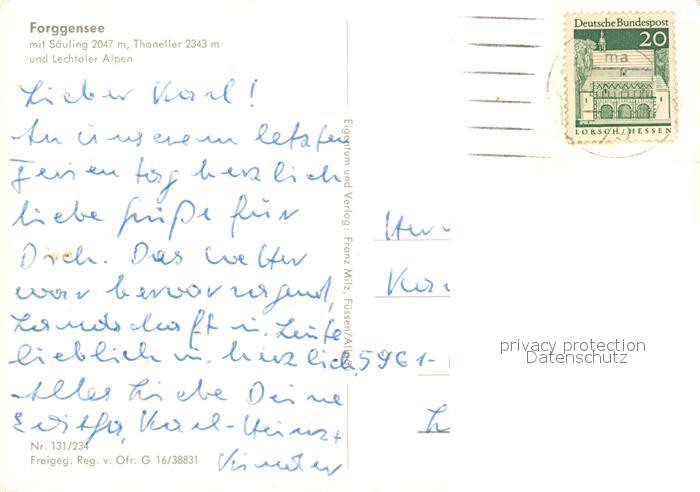 Forggensee
mit Säuling 2047 m, Thaneller 2343 m
und Lechtaler Alpen
Lieber Karl!
An unserem letzten
Ferientag herzlich
liebe Grüße für
Dich. Das Wetter
war hervorragend,
Landschaft u. Leute
lieblich u. herzlich.
Alles Liebe Deine
Editha, Karl-Heinz +
Kinder
Nr. 131/234
Freigeg. Reg. v. Ofr. G 16/38831
Eigentum und Verlag: Franz Milz, Füssen/
Deutsche Bundespost
20
LORSCH/HESSEN
Herr
5961-
privacy protection
Datenschutz